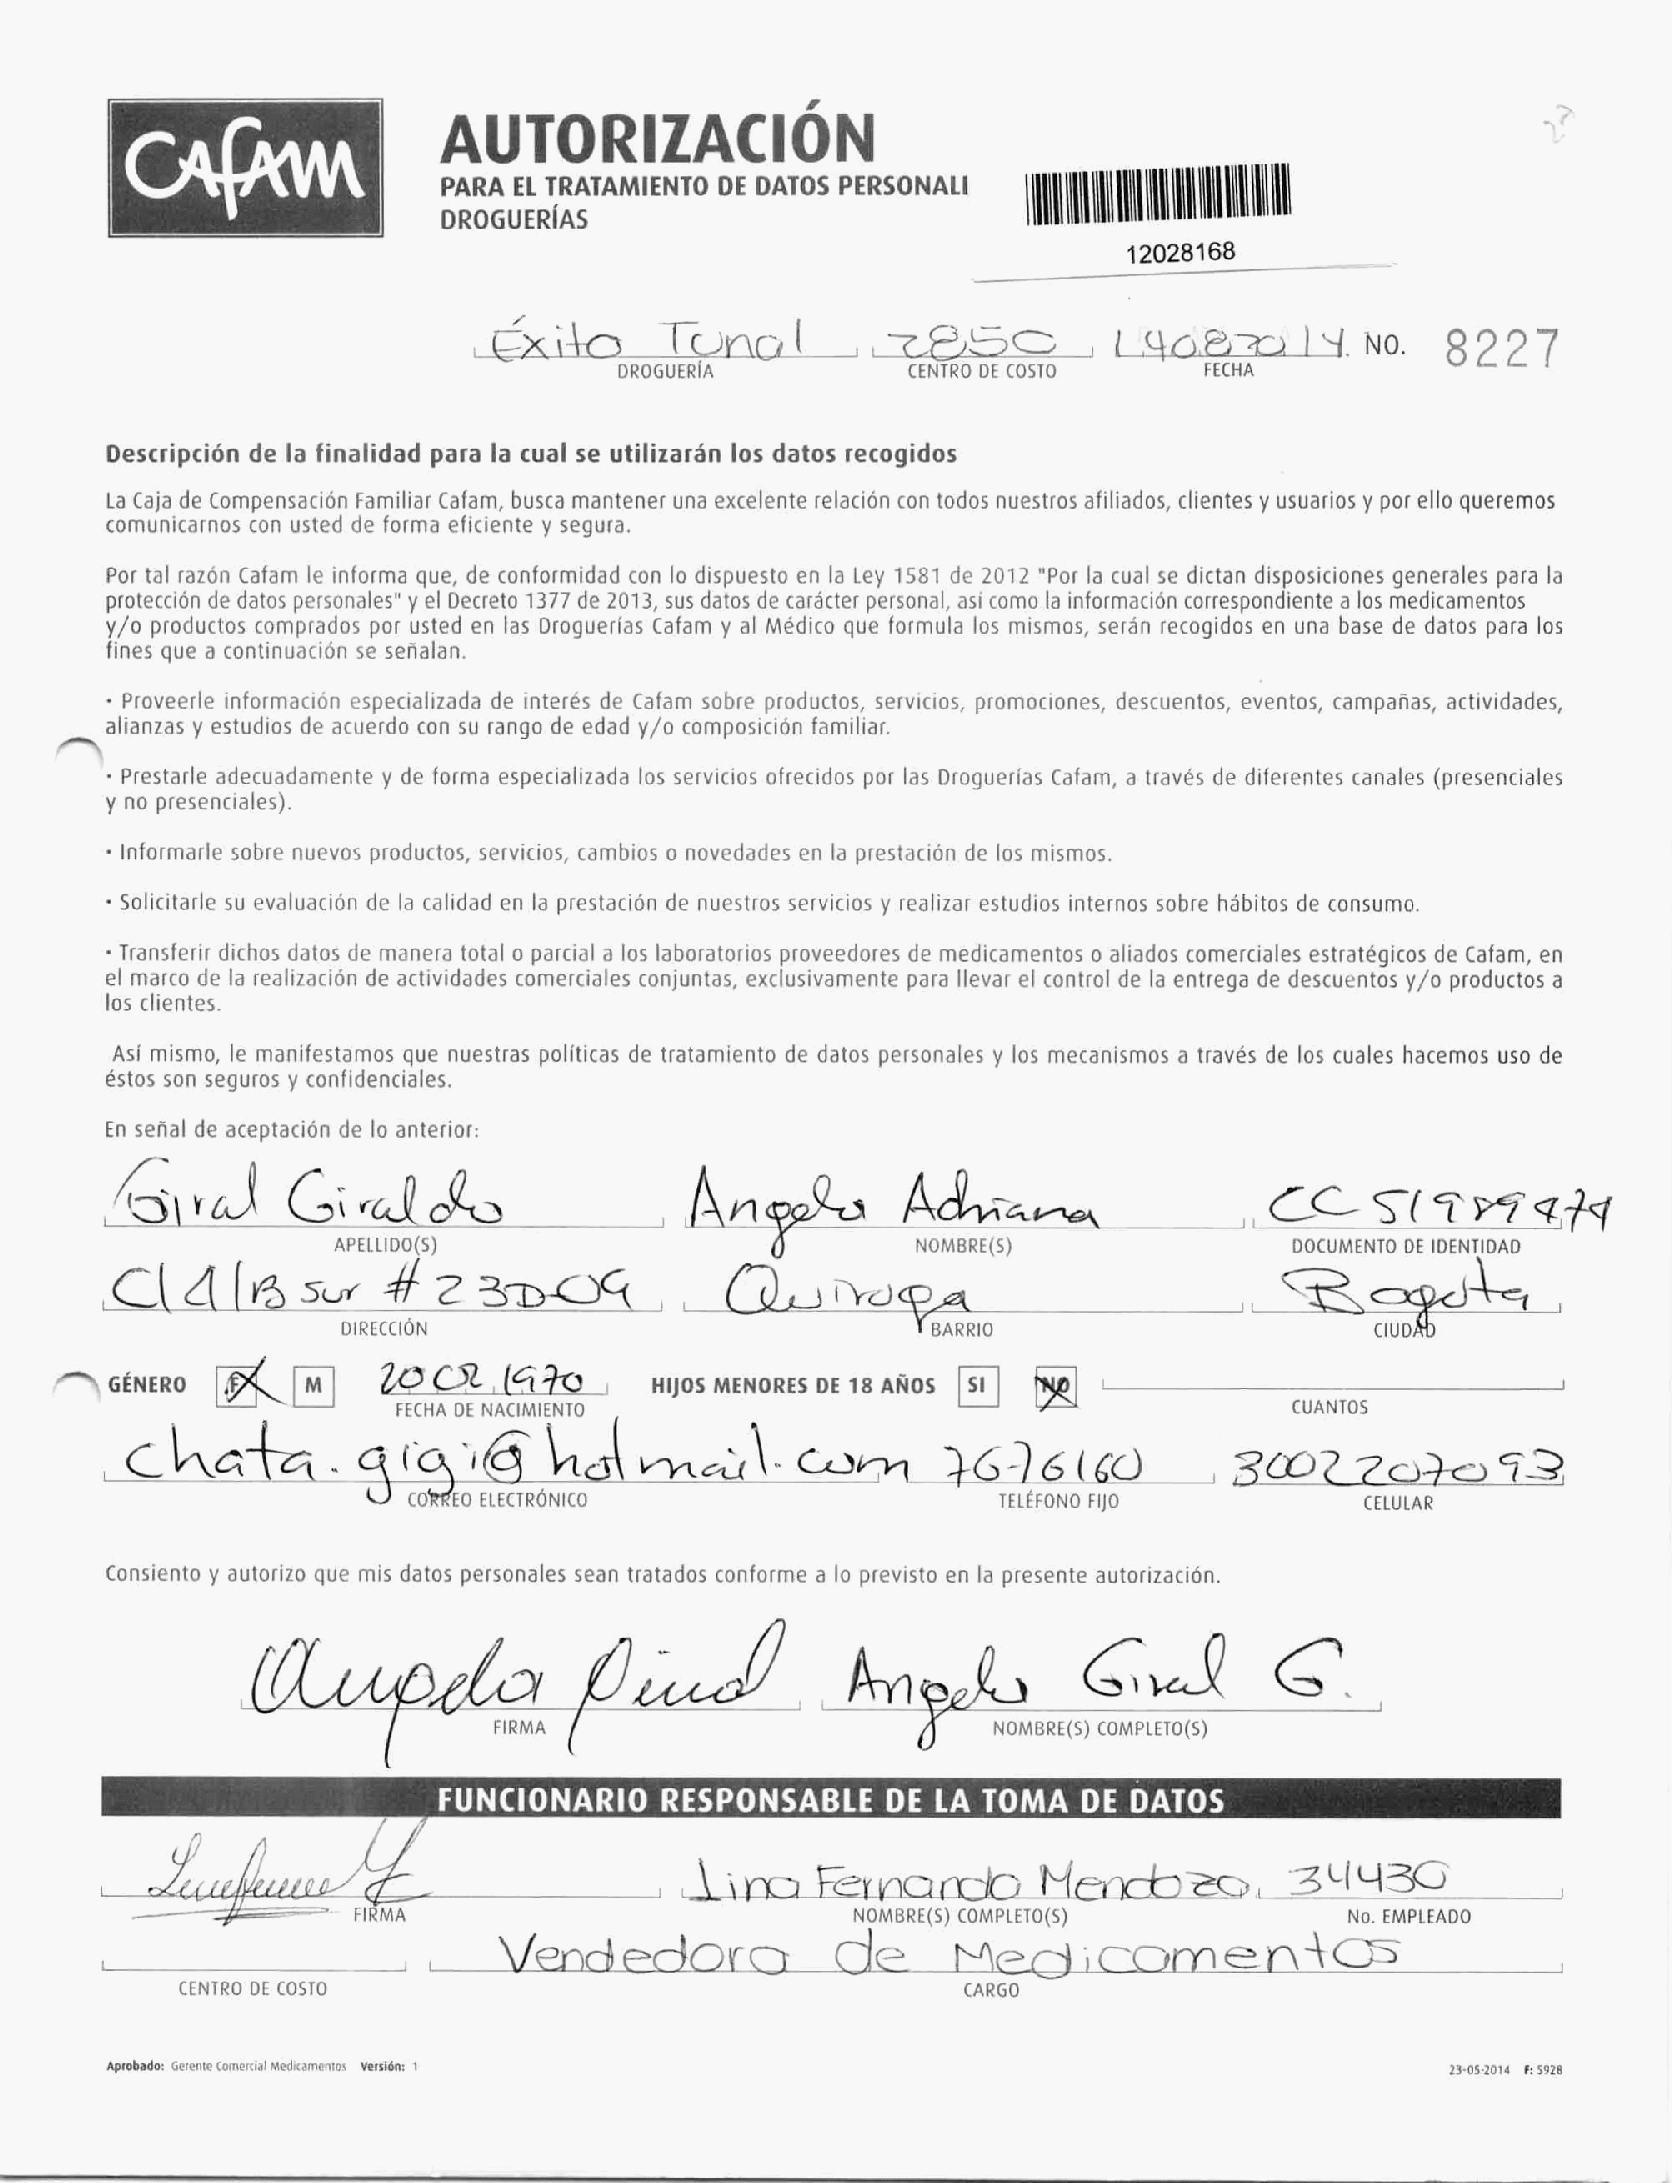 CAFAM
AUTORIZACIÓN
PARA EL TRATAMIENTO DE DATOS PERSONALI
DROGUERÍAS
12028168
Éxito Tunal 2850 14082014 NO. 8227
DROGUERÍA CENTRO DE COSTO FECHA
Descripción de la finalidad para la cual se utilizarán los datos recogidos
La Caja de Compensación Familiar Cafam, busca mantener una excelente relación con todos nuestros afiliados, clientes y usuarios y por ello queremos
comunicarnos con usted de forma eficiente y segura.
Por tal razón Cafam le informa que, de conformidad con lo dispuesto en la Ley 1581 de 2012 "Por la cual se dictan disposiciones generales para la
protección de datos personales" y el Decreto 1377 de 2013, sus datos de carácter personal, asi como la información correspondiente a los medicamentos
y/o productos comprados por usted en las Droguerías Cafam y al Médico que formula los mismos, serán recogidos en una base de datos para los
fines que a continuación se señalan.
· Proveerle información especializada de interés de Cafam sobre productos, servicios, promociones, descuentos, eventos, campañas, actividades,
alianzas y estudios de acuerdo con su rango de edad y/o composición familiar.
· Prestarle adecuadamente y de forma especializada los servicios ofrecidos por las Droguerías Cafam, a través de diferentes canales (presenciales
y no presenciales).
· Informarle sobre nuevos productos, servicios, cambios o novedades en la prestación de los mismos.
· Solicitarle su evaluación de la calidad en la prestación de nuestros servicios y realizar estudios internos sobre hábitos de consumo.
· Transferir dichos datos de manera total o parcial a los laboratorios proveedores de medicamentos o aliados comerciales estratégicos de Cafam, en
el marco de la realización de actividades comerciales conjuntas, exclusivamente para llevar el control de la entrega de descuentos y/o productos a
los clientes.
Así mismo, le manifestamos que nuestras políticas de tratamiento de datos personales y los mecanismos a través de los cuales hacemos uso de
éstos son seguros y confidenciales.
En señal de aceptación de lo anterior:
Giral Giraldo Angela Adriana CC 51989479
APELLIDO(S) NOMBRE(S) DOCUMENTO DE IDENTIDAD
sur # Quiroga Bogota
DIRECCIÓN BARRIO CIUDAD
GÉNERO F M 20 02 1970 HIJOS MENORES DE 18 AÑOS SI NO
FECHA DE NACIMIENTO CUANTOS
chata.gigi@hotmail.com 7676160 3002207093
CORREO ELECTRÓNICO TELÉFONO FIJO CELULAR
Consiento y autorizo que mis datos personales sean tratados conforme a lo previsto en la presente autorización.
Angela Giral Angela Giral G.
FIRMA NOMBRE(S) COMPLETO(S)
FUNCIONARIO RESPONSABLE DE LA TOMA DE DATOS
Lina Fernanda Mendoza 34430
FIRMA NOMBRE(S) COMPLETO(S) No. EMPLEADO
Vendedora de Medicamentos
CENTRO DE COSTO CARGO
Aprobado: Gerente Comercial Medicamentos Versión: 1
23-05-2014 F: 5928